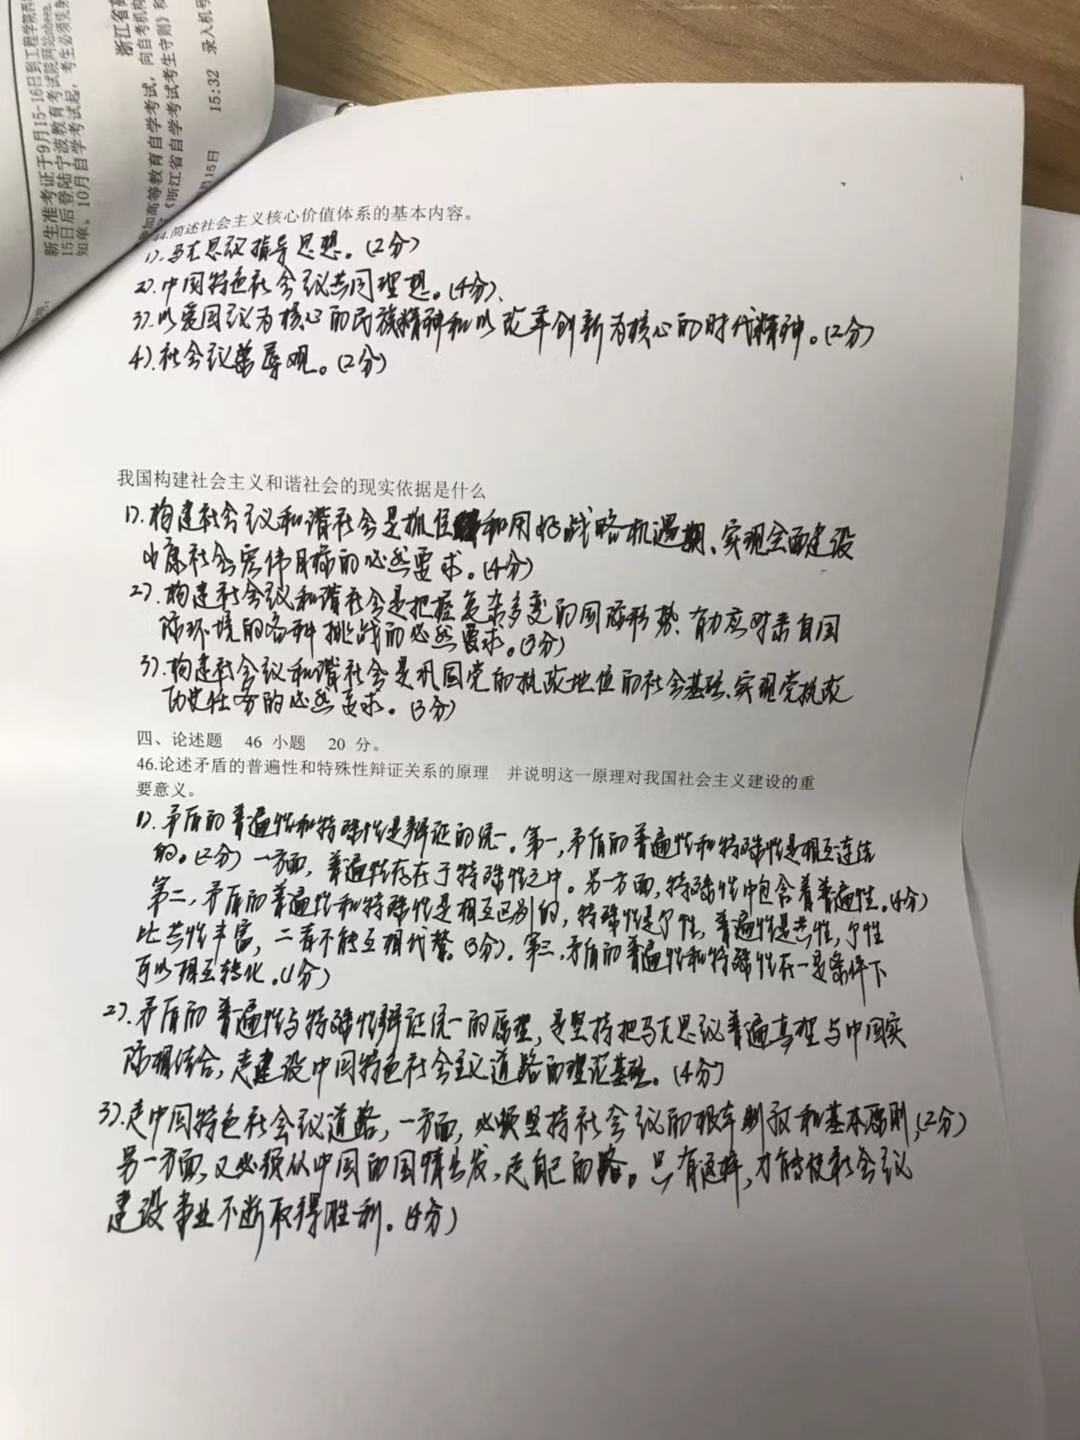 新生准考证于9月15-16日到工程学院西
15日后登陆宁波教育考试院网站nbeea.
知单。10月自学考试起，考生必须凭身
浙江省高
参加高等教育自学考试，向自考机构
《浙江省自学考试考生守则》和
月15日 15:32 录入机号
44.简述社会主义核心价值体系的基本内容。
1).马克思议指导思想。(2分)
2).中国特色社会议共同理想。(4分)、
3).以爱国议为核心的民族精神和以改革创新为核心的时代精神。(2分)
4).社会议荣辱观。(2分)
我国构建社会主义和谐社会的现实依据是什么
1).构建社会议和谐社会是抓住和用好战略机遇期、实现全面建设
小康社会宏伟目标的必然要求。(4分)
2).构建社会议和谐社会是把握复杂多变的国际形势、有力应对来自国
际环境的各种挑战的必然要求。(3分)
3).构建社会议和谐社会是巩固党的执政地位的社会基础、实现党执政
历史任务的必然要求。(3分)
四、论述题 46 小题 20 分。
46.论述矛盾的普遍性和特殊性辩证关系的原理 并说明这一原理对我国社会主义建设的重
要意义。
1).矛盾的普遍性和特殊性是辩证的统一。第一,矛盾的普遍性和特殊性是相互连结
的。(2分)一方面,普遍性存在于特殊性之中。另一方面,特殊性中包含着普遍性。(4分)
第二,矛盾的普遍性和特殊性是相互区别的,特殊性是个性,普遍性是共性,个性
比共性丰富,二者不能互相代替。(3分)。第三,矛盾的普遍性和特殊性在一定条件下
可以相互转化。(1分)
2).矛盾的普遍性与特殊性辩证统一的原理,是坚持把马克思议普遍真理与中国实
际相结合,走建设中国特色社会主义道路的理论基础。(4分)
3).走中国特色社会议道路,一方面,必须坚持社会议的根本制度和基本原则,(2分)
另一方面,又必须从中国的国情出发,走自己的路。只有这样,才能使社会议
建设事业不断取得胜利。(4分)